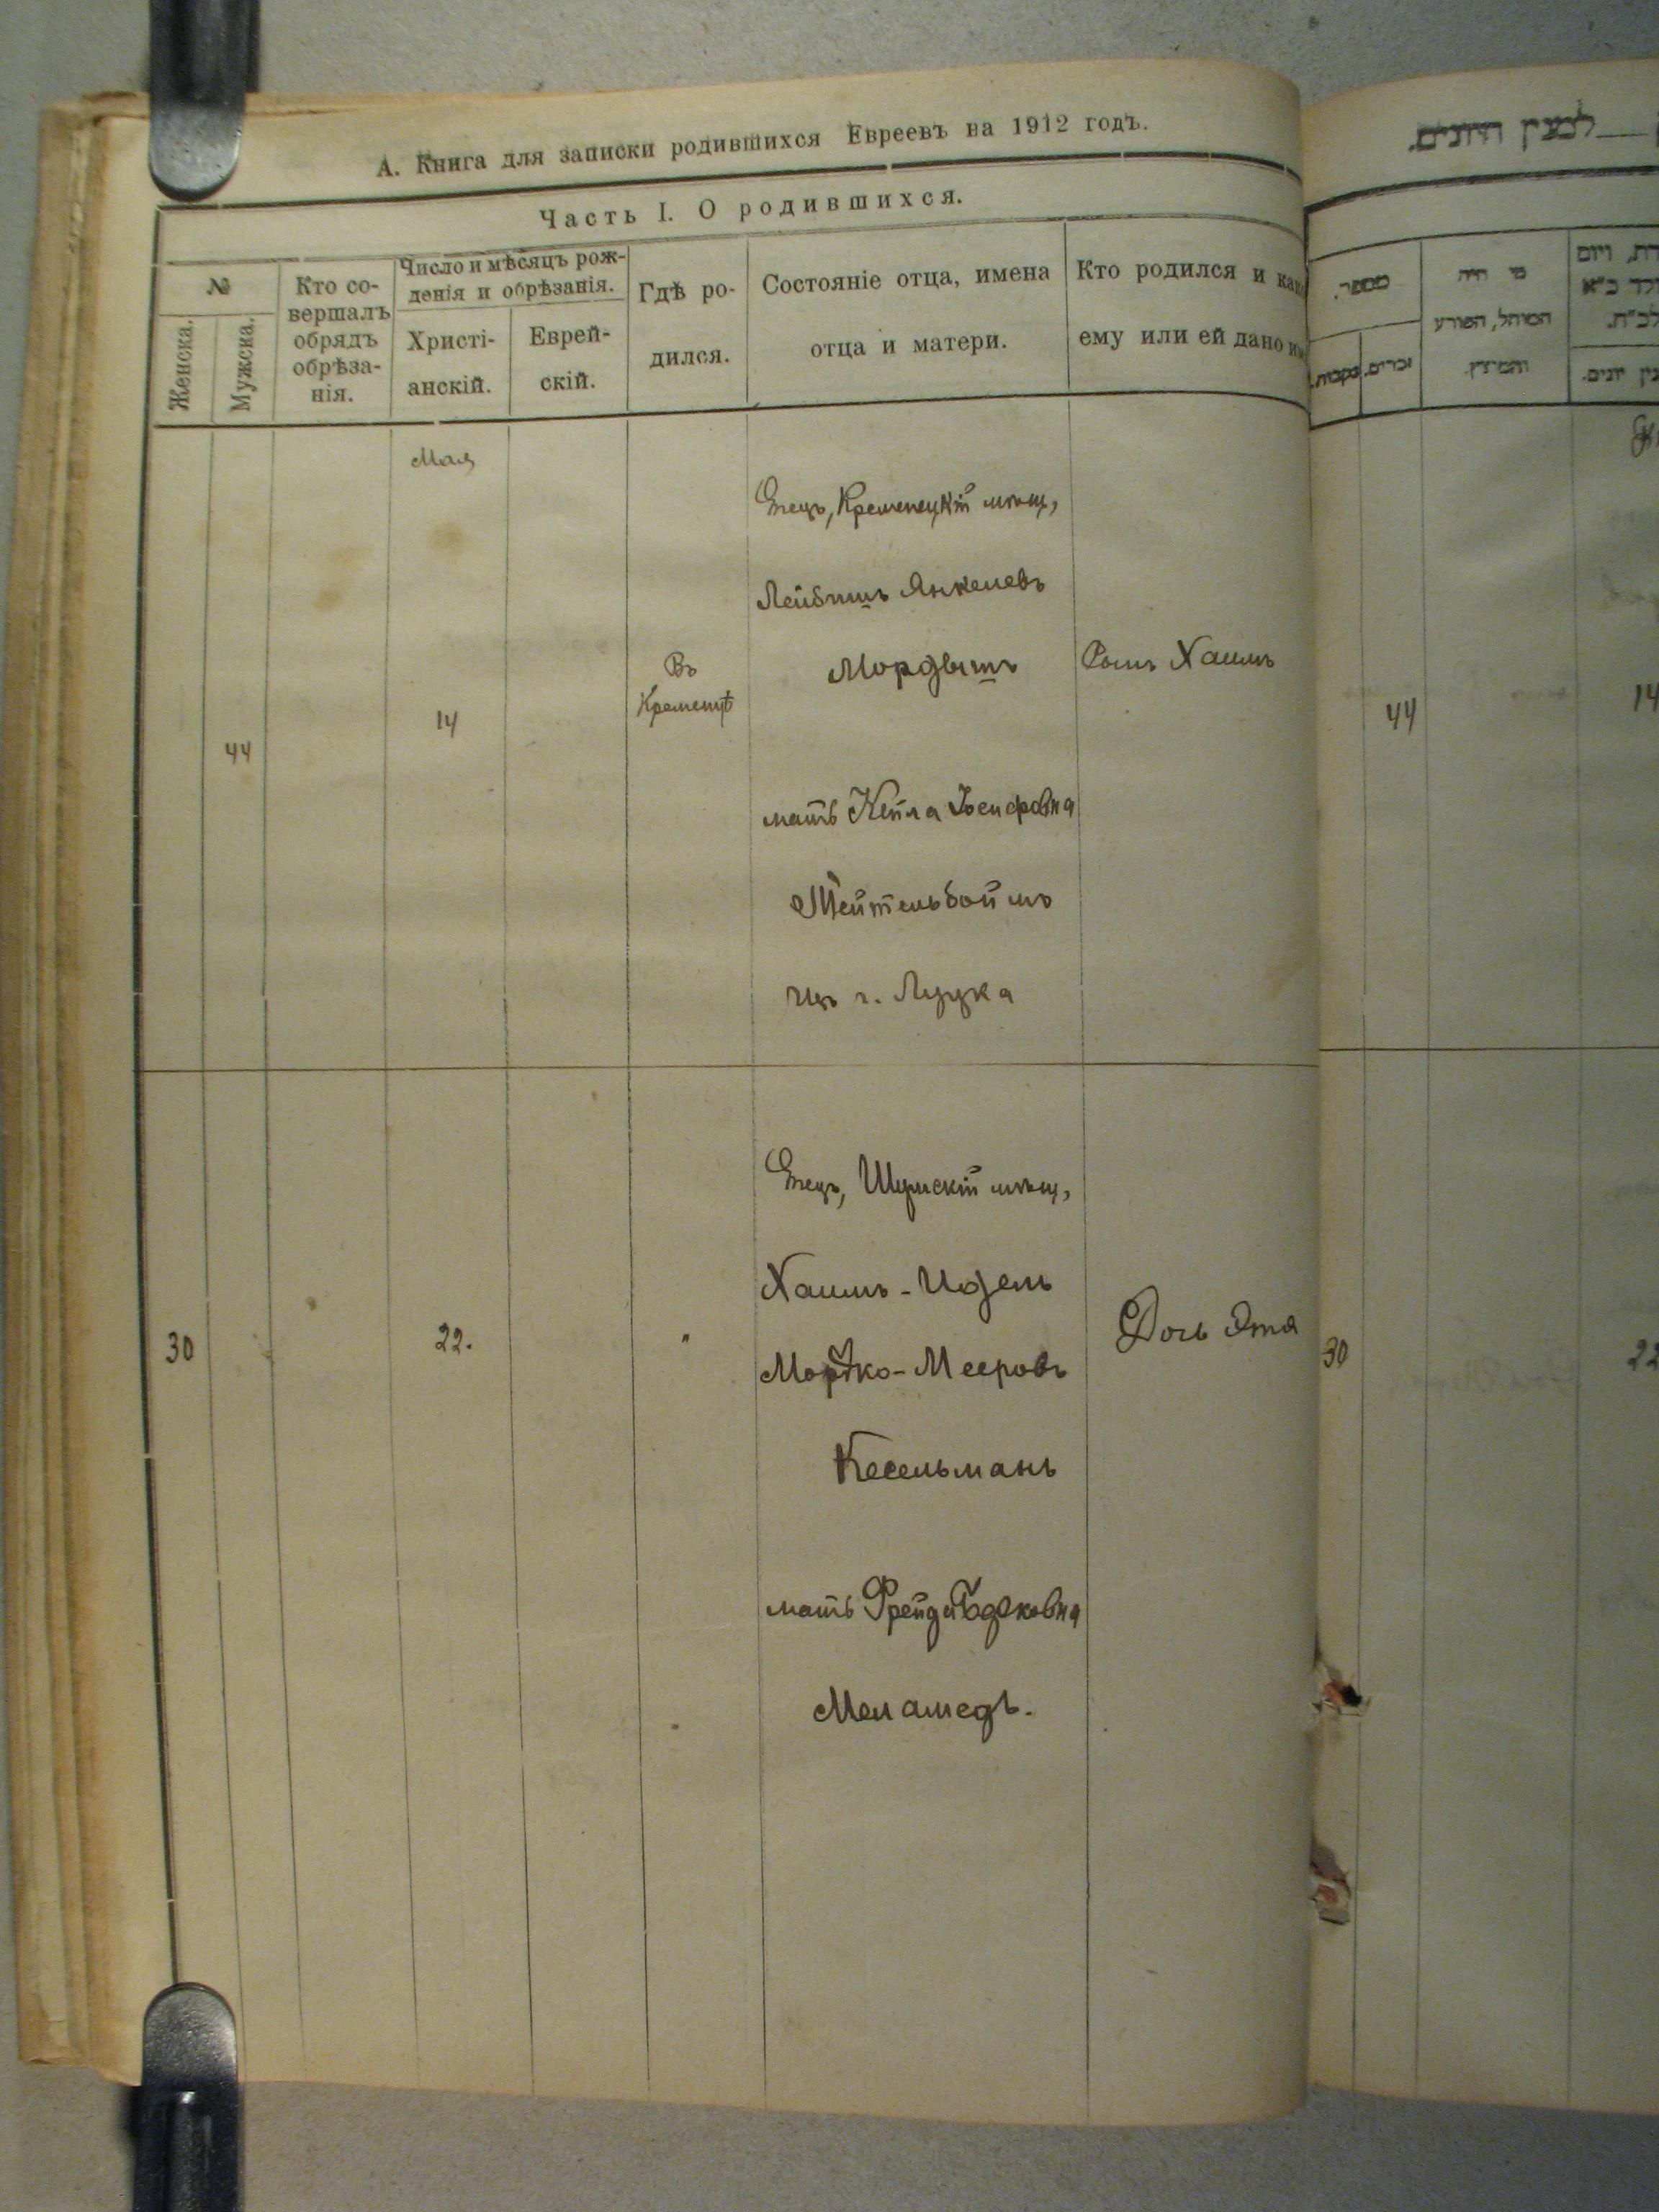 А. Книга для записки родившихся Евреевъ на 1912 годъ.
Часть I. О родившихся.
№
Женска.
Мужска.
Кто со-
вершалъ
обрядъ
обрѣза-
нія.
Число и мѣсяцъ рож-
денія и обрѣзанія.
Христі-
анскій.
Еврей-
скій.
Гдѣ ро-
дился.
Состояніе отца, имена
отца и матери.
Кто родился и как
ему или ей дано
Мая
44
14
Въ
Кременцѣ
Отецъ, Кременецкій мѣщ,
Лейбишъ Янкелевъ
Мордышъ
мать Кейла Іосифовна
Тейтельбоймъ
изъ г. Луцка
Сынъ Хаимъ
30
22.
"
Отецъ, Шумскій мѣщ,
Хаимъ-Идель
Мордко-Мееровъ
Кесельманъ
мать Фрейда
Меламедъ.
Дочь Эта
לבצין היונים.
מספר.
נקבות.
זכרים.
מי היה
המוהל, הפורע
והמוצץ.
44
14
30
22